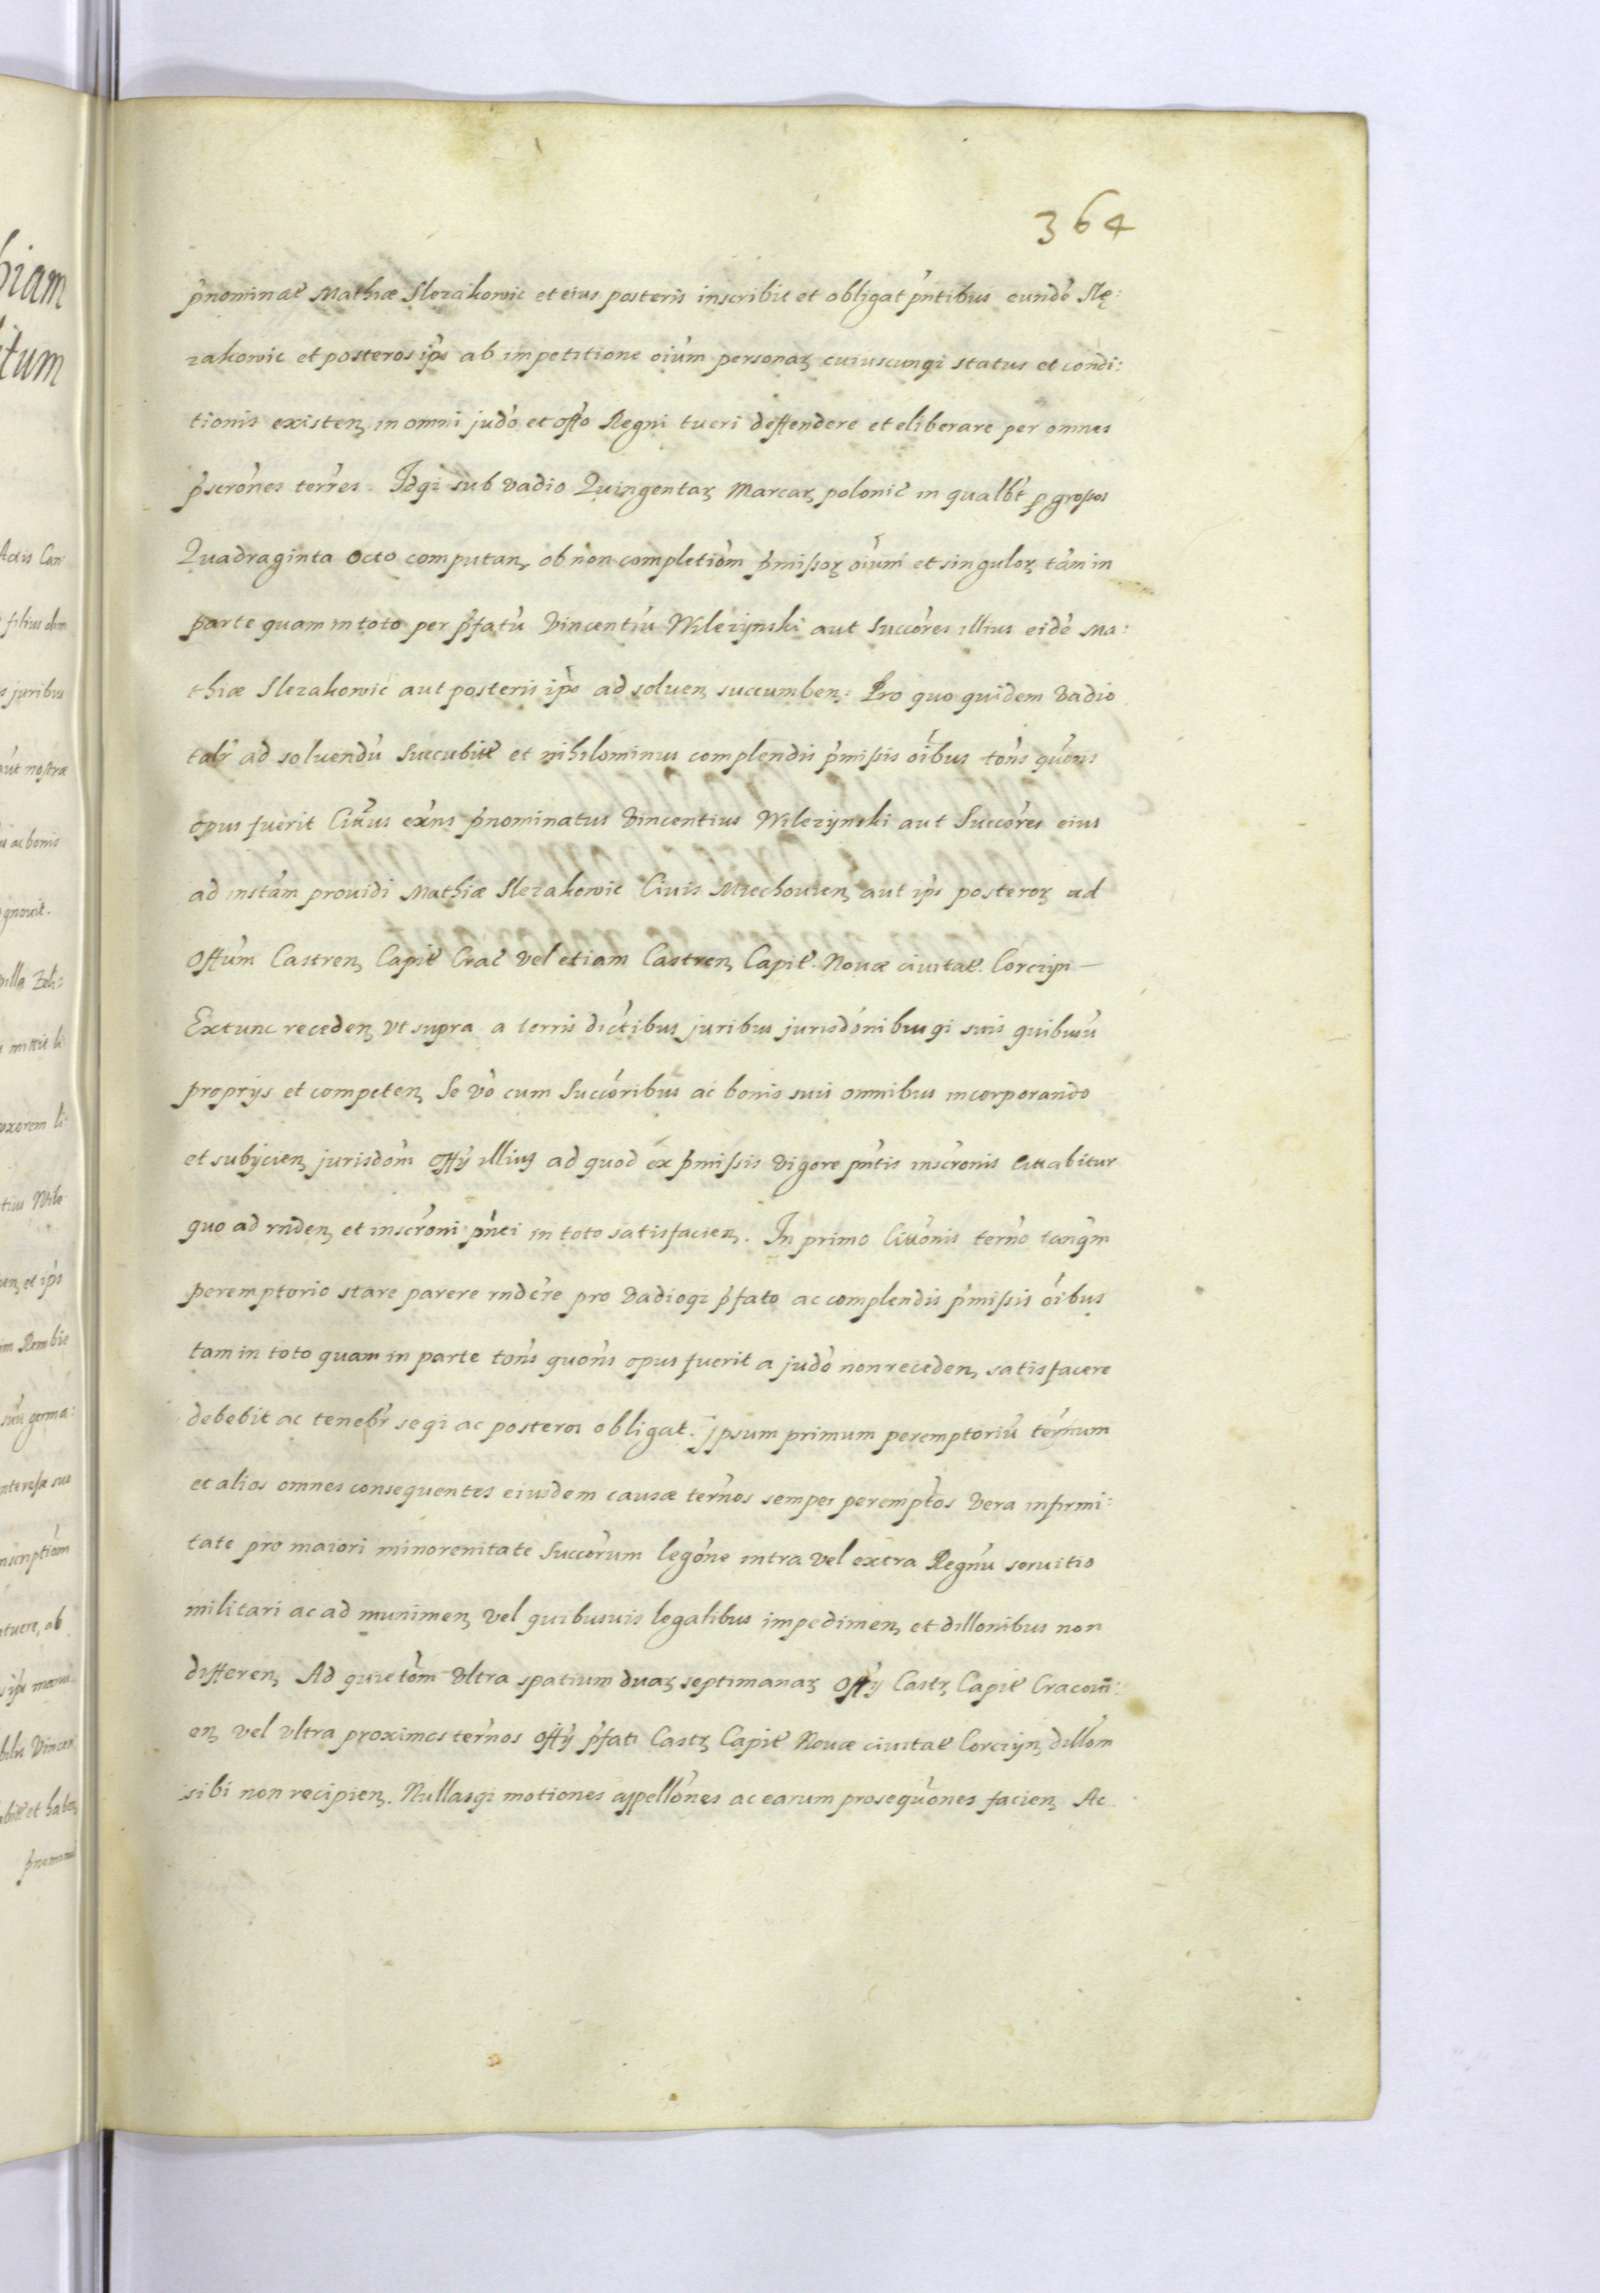 364
p̃nominat̃ Mathiæ Slezakowic et eius posteris inscribit et obligat p̃ntibus eundẽ Slę:
zakowic et posteros ip̃s ab impetitione oiũm personaꝝ cuiuscunqi status et condi:
tionis existenꝫ in omni judõ et offõ Regni tueri deffendere et eliberare per omnes
p̃scrõnes terr̃es. Idqi sub vadio Quingentaꝝ Marcaꝝ polonic̃ in qualbt̃ ꝑ grossos
Quadraginta Octo computanꝫ ob non completiõm p̃missoꝝ oiũm et singuloꝝ tam in
parte quam in toto per p̃fatũ Vincentiũ Wilczynski aut Succõres illius eidẽ Ma:
thiæ Slezakowic aut posteris ip̃s ad soluenꝫ succumbenꝫ: Pro quo quidem vadio
talr̃ ad soluendũ Succubit̃ et nihilominus complendis p̃missis oĩbus tõns quõns
opus fuerit Citt̃us exñs p̃nominatus Vincentius Wilczynski aut Succõres eius
ad instãm prouidi Mathiæ Slezakowic Ciuis Miechouienꝫ aut ip̃s posteroꝝ ad
Offũm Castrenꝫ Capit̃ Crac̃ vel etiam Castrenꝫ Capit̃. Nouæ ciuitat̃. Corczyn
Extunc recedenꝫ vt supra a terris dict̃ibus juribus jurisdõnibusqi suis quibusũ
proprys et competenꝫ Se võ cum Succõribus ac bonis suis omnibus incorporando
et subÿcienꝫ jurisdõm Offÿ illius ad quod ex p̃missis vigore p̃ntis inscrõnis Cittabitur
quo ad rñdenꝫ et inscrõni p̃nti in toto satisfacienꝫ. In primo Citt̃onis ter̃no tanq̃m
peremptorio stare parere rñdẽre pro vadioqi p̃fato ac complendis p̃missis oĩbus
tam in toto quam in parte tõns quõns opus fuerit a judõ non recedenꝫ satisfacere
debebit ac tenebr̃ seqi ac posteros obligat. Ipsum primum peremptoriũ ter̃num
et alios omnes consequentes eiusdem causæ ter̃nos semper peremptõs vera infirmi:
tate pro maiori minorenitate Succõrum legõne intra vel extra Regnũ seruitio
militari ac ad munimenꝫ vel quibusuis legalibus impedimenꝫ et dillonibus non
differenꝫ Ad quietõm vltra spatium duaꝝ septimanaꝝ Offÿ Castꝝ Capit̃ Cracoũi:
enꝫ vel vltra proximos ter̃nos offÿ p̃fati Castꝝ Capit̃ Nouæ ciuitat̃ Corczynꝫ dillõm
sibi non recipienꝫ. Nullasqi motiones appellõnes ac earum prosequõnes facienꝫ Ac